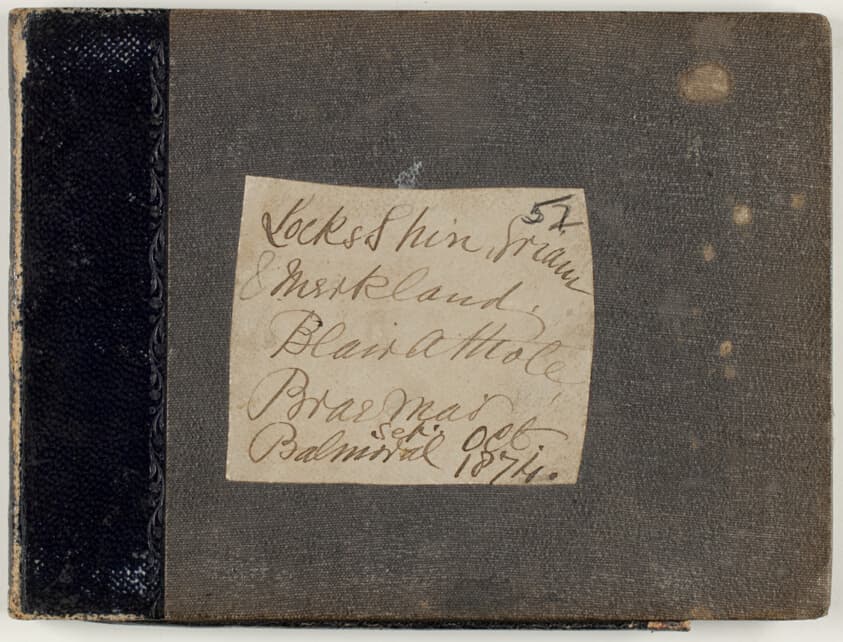 52
Lochs Shin, Griam
& Merkland,
Blair Athole,
Braemar
Balmoral Sep. Oct. 1874.